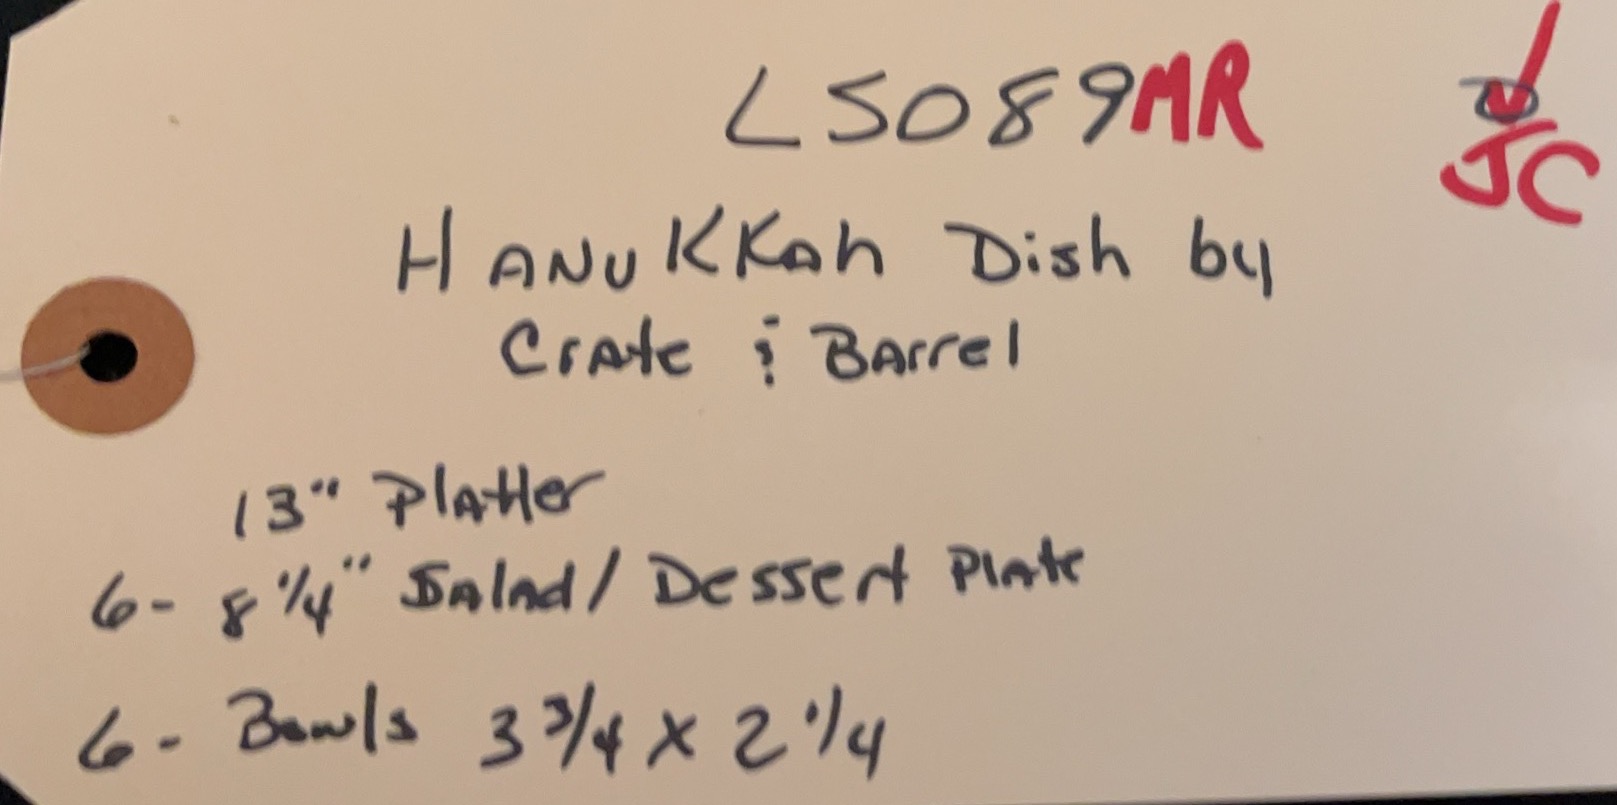 LS089MR
JC
HANUKKah Dish by
Crate & Barrel
13" Platter
6- 8 1/4" Salad/Dessert Plate
6- Bowls 3 3/4 x 2 1/4